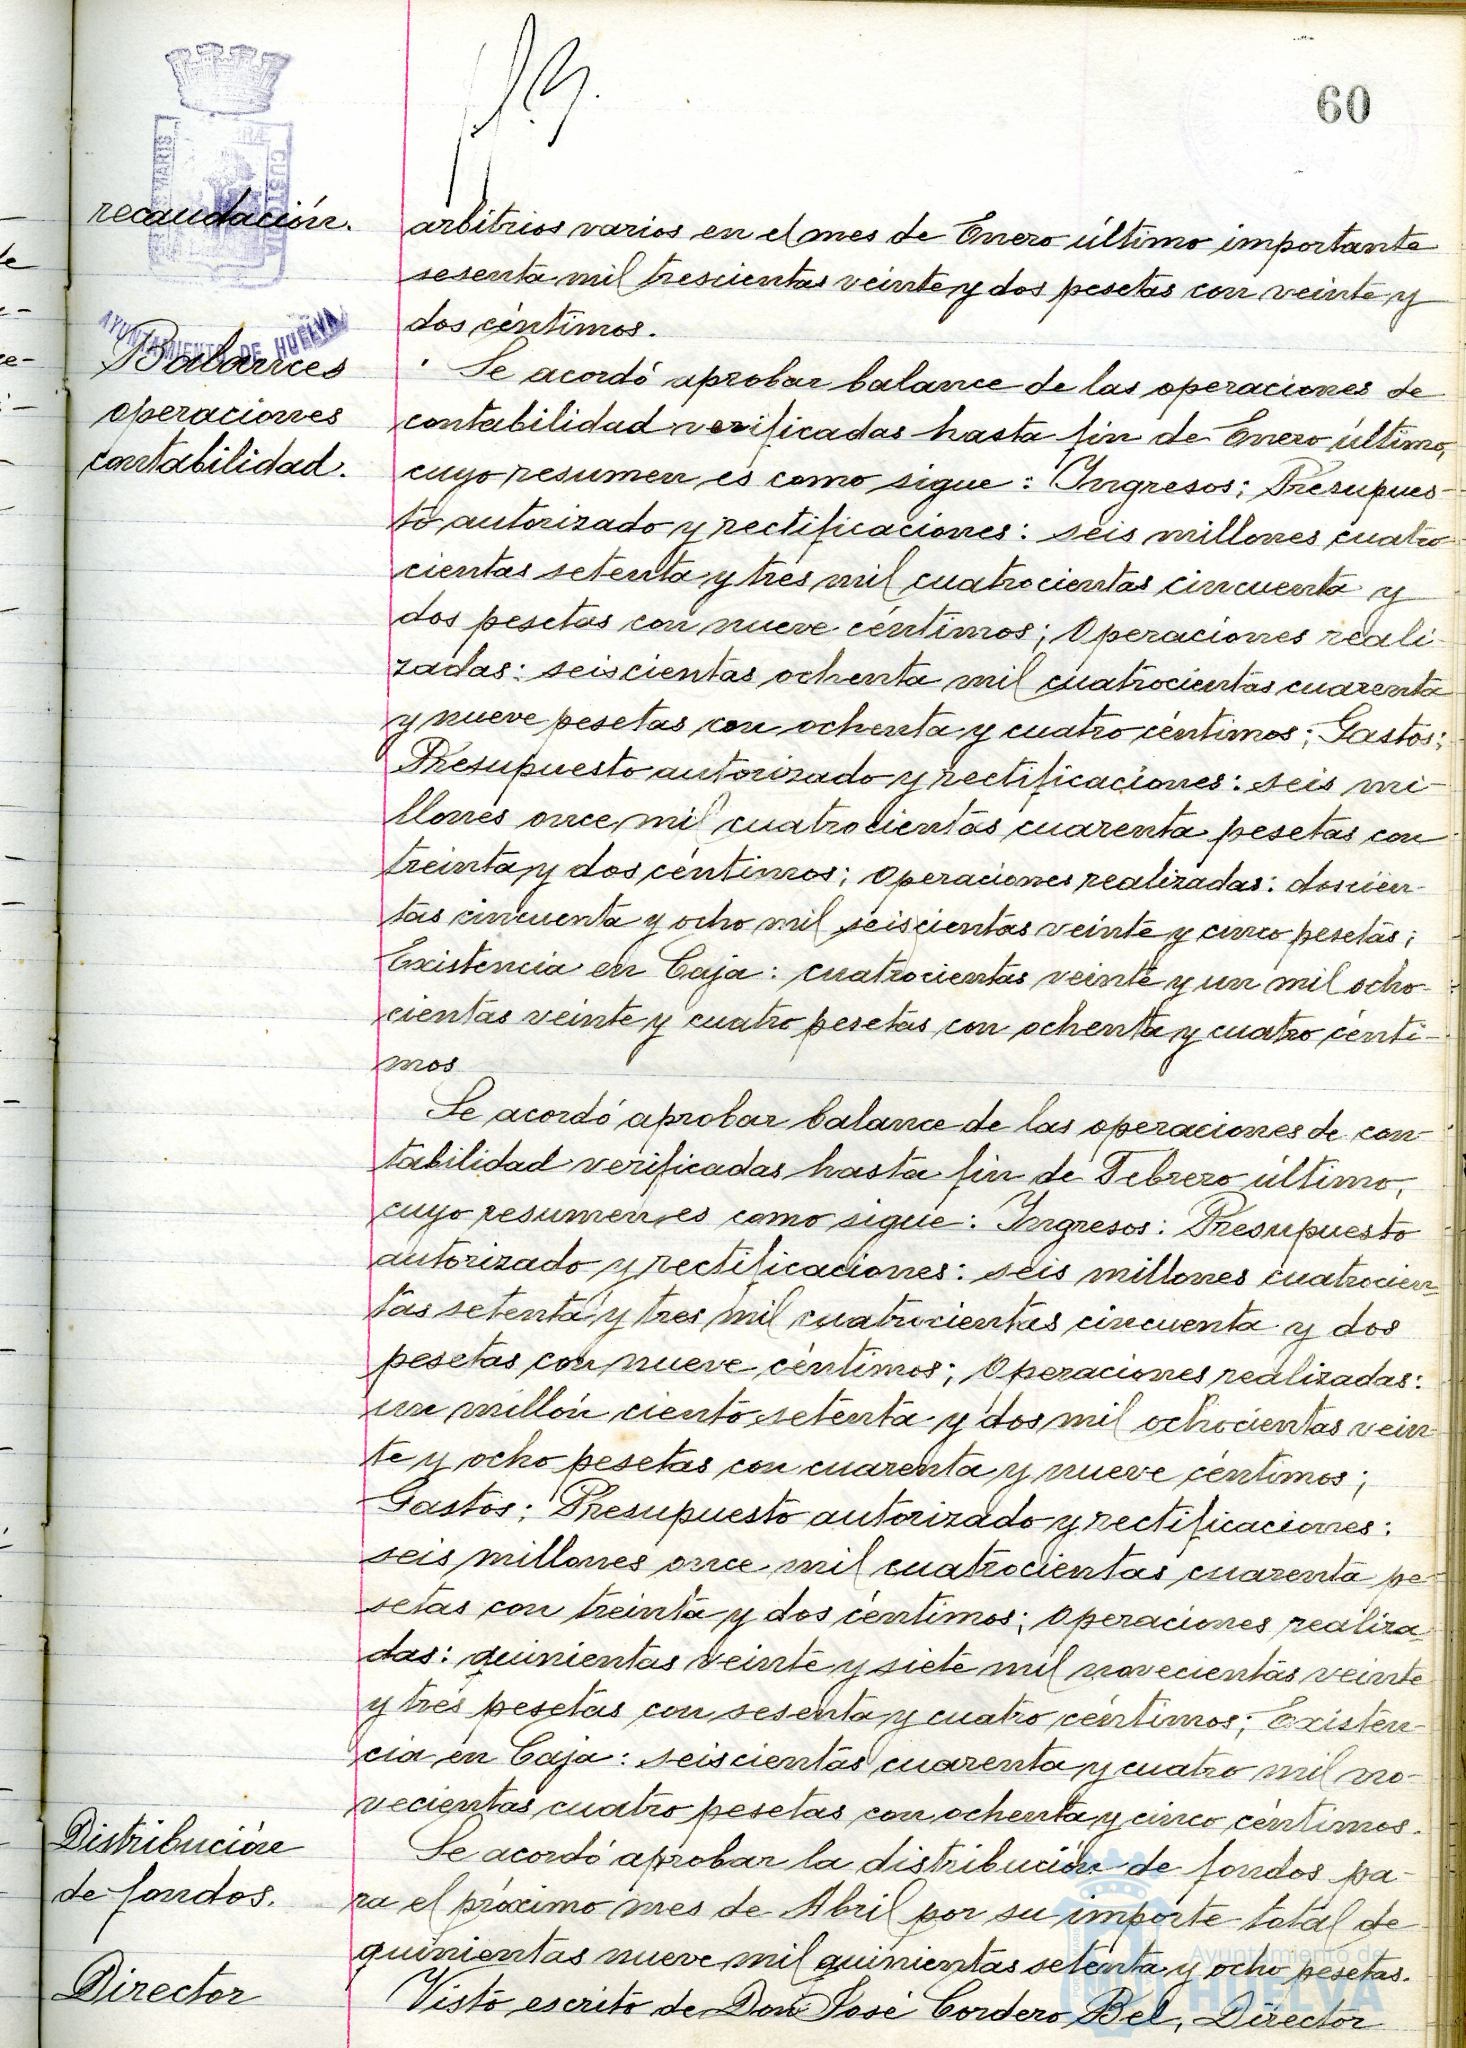 60
recaudación.
arbitrios varios en el mes de Enero último importante
sesenta mil trescientas veinte y dos pesetas con veinte y
dos céntimos.
AYUNTAMIENTO DE HUELVA
Balances
operaciones
contabilidad.
Se acordó aprobar balance de las operaciones de
contabilidad verificadas hasta fin de Enero último,
cuyo resumen es como sigue: Ingresos; Presupues-
to autorizado y rectificaciones: seis millones cuatro
cientas setenta y tres mil cuatrocientas cincuenta y
dos pesetas con nueve céntimos; Operaciones reali-
zadas: seiscientas ochenta mil cuatrocientas cuarenta
y nueve pesetas con ochenta y cuatro céntimos; Gastos;
Presupuesto autorizado y rectificaciones: seis mi-
llones once mil cuatrocientas cuarenta pesetas con
treinta y dos céntimos; Operaciones realizadas: doscien-
tas cincuenta y ocho mil seiscientas veinte y cinco pesetas;
Existencia en Caja: cuatrocientas veinte y un mil ocho-
cientas veinte y cuatro pesetas con ochenta y cuatro cénti-
mos
Se acordó aprobar balance de las operaciones de con-
tabilidad verificadas hasta fin de Febrero último,
cuyo resumen es como sigue: Ingresos: Presupuesto
autorizado y rectificaciones: seis millones cuatrocien-
tas setenta y tres mil cuatrocientas cincuenta y dos
pesetas con nueve céntimos; Operaciones realizadas:
un millón ciento setenta y dos mil ochocientas vein-
te y ocho pesetas con cuarenta y nueve céntimos;
Gastos; Presupuesto autorizado y rectificaciones:
seis millones once mil cuatrocientas cuarenta pe-
setas con treinta y dos céntimos; Operaciones realiza-
das: quinientas veinte y siete mil novecientas veinte
y tres pesetas con sesenta y cuatro céntimos; Existen-
cia en Caja: seiscientas cuarenta y cuatro mil no-
vecientas cuatro pesetas con ochenta y cinco céntimos.
Distribución
de fondos.
Se acordó aprobar la distribución de fondos pa-
ra el próximo mes de Abril por su importe total de
quinientas nueve mil quinientas setenta y ocho pesetas.
Director
Visto escrito de Don José Cordero Bel, Director
Ayuntamiento de
HUELVA